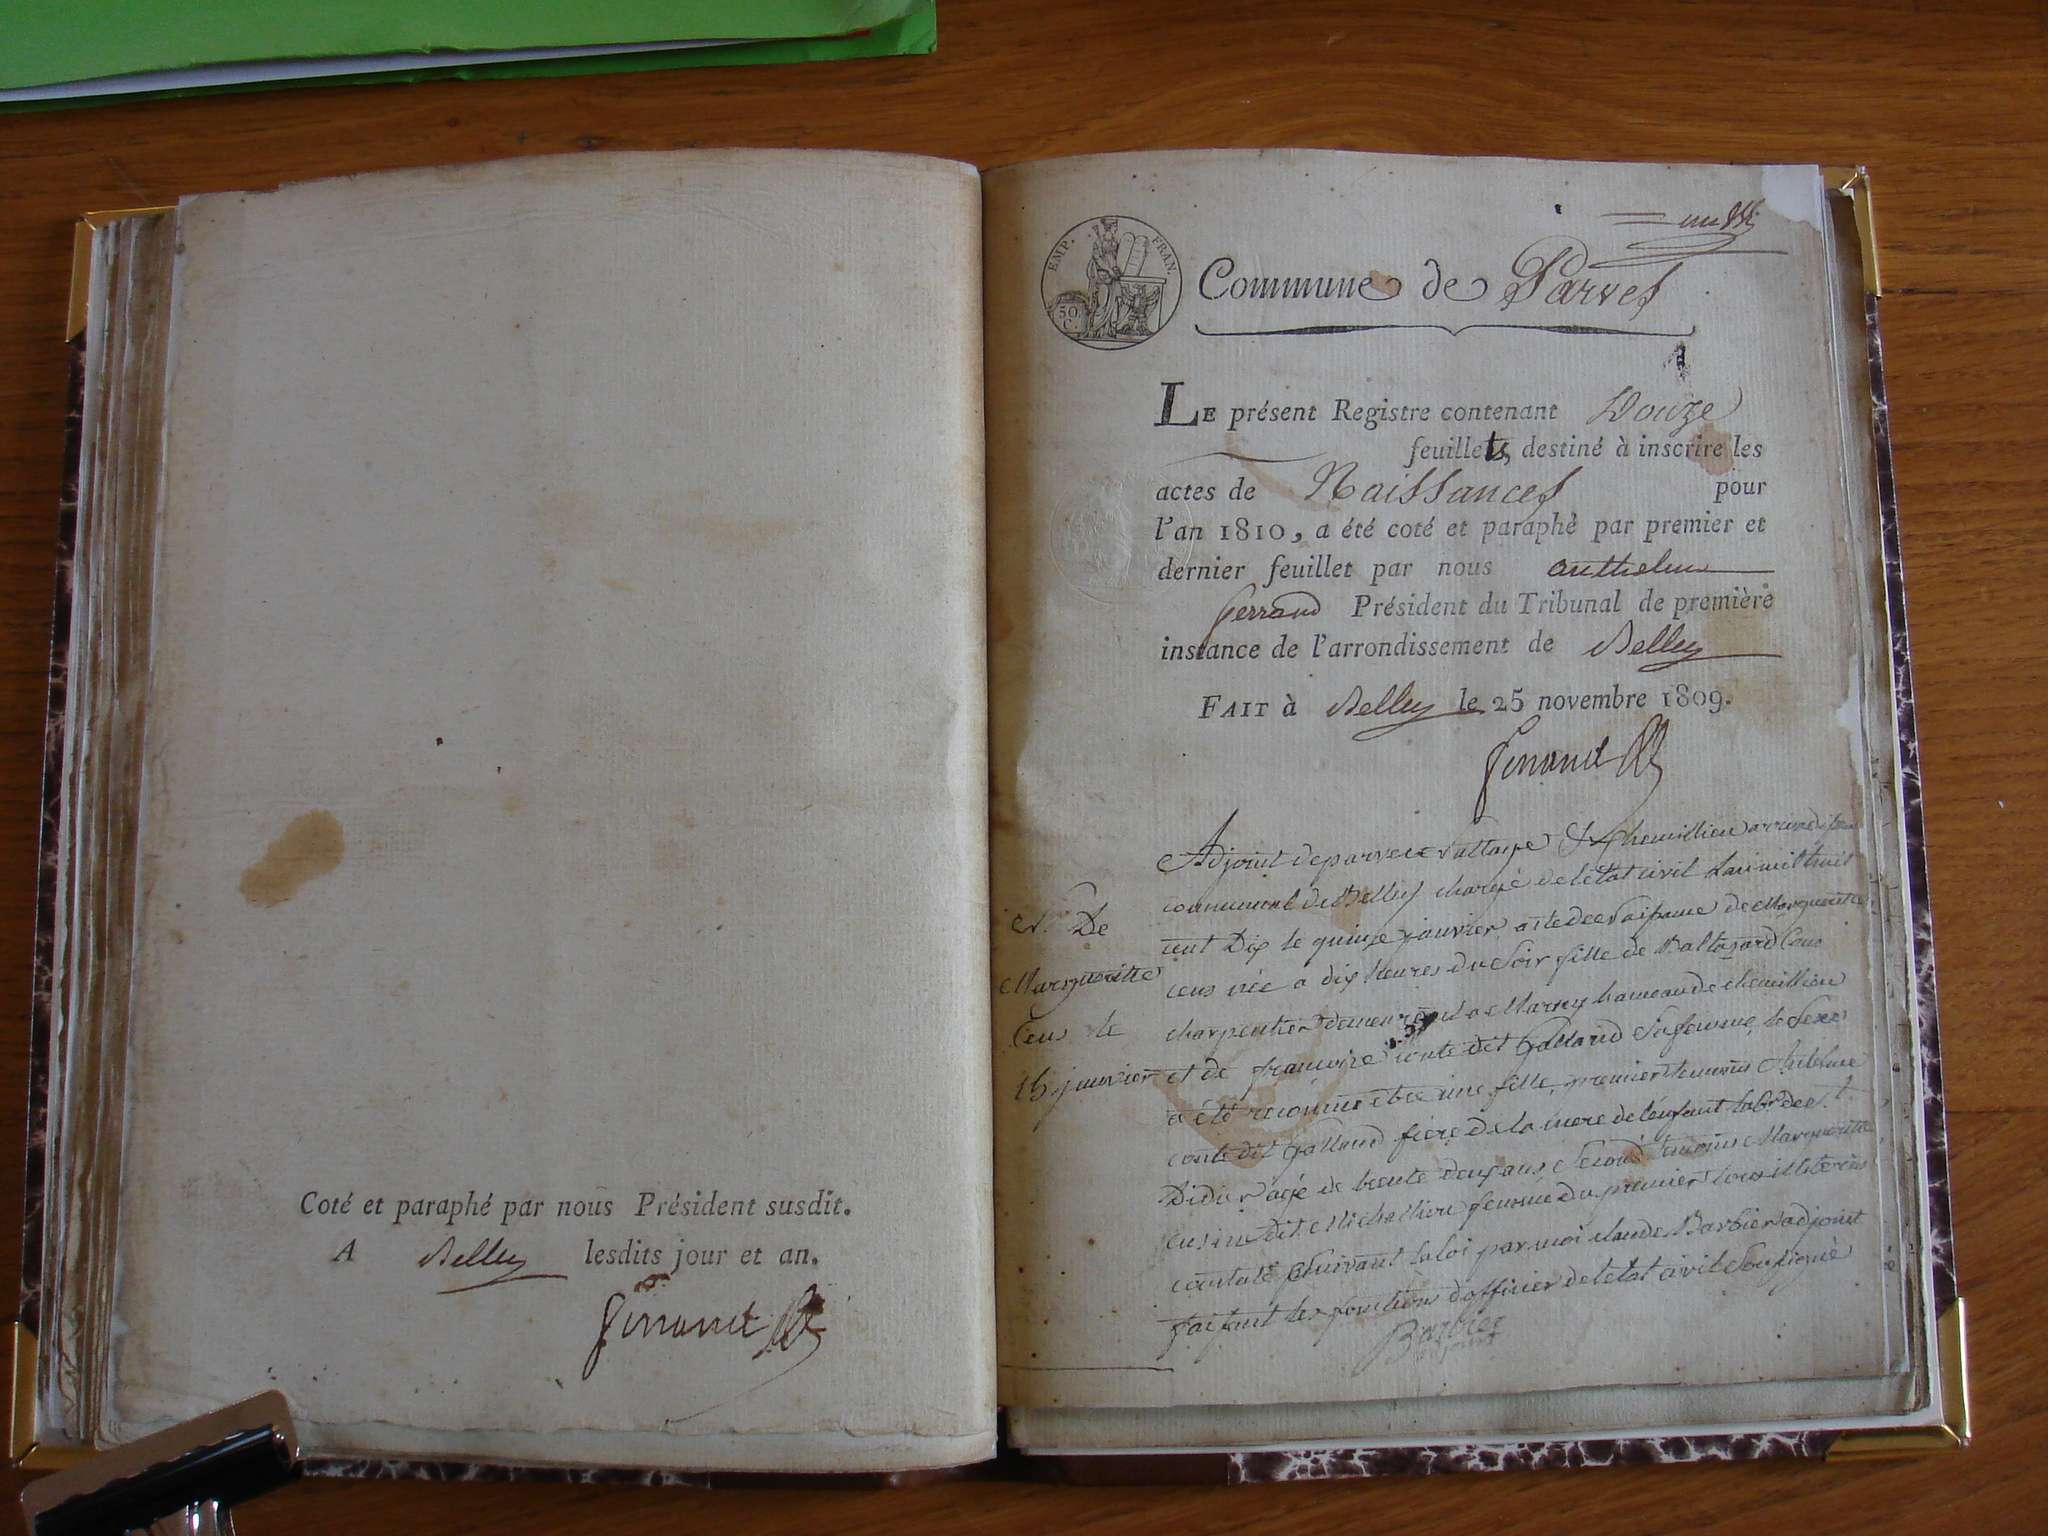 Coté et paraphé par nous Président susdit.
A Belley lesdits jour et an.
EMP. FRAN.
50 C.
Commune de Parves
LE présent Registre contenant Douze
feuillets, destiné à inscrire les
actes de Naissances pour
l'an 1810, a été coté et paraphé par premier et
dernier feuillet par nous anthelme
ferrand Président du Tribunal de première
instance de l'arrondissement de Belley
FAIT à Belley le 25 novembre 1809.
N. De
Margueritte
Cens le
15 janvier
Adjoint de parves
communal de Belley chargé de letat civil Lan mil huit
cent Dix le quinze janvier acte de naissance de Margueritte
cens née a dix heures du soir fille de Baltazard Cens
charpentier demeurant a Marny hameau de chemillieu
et de francoise conte dit Galland sa femme le sexe
a été reconnu etre une fille, premier temoins Anthelme
conte dit Galland frere de la mere de lenfant
Didier agé de trente deux ans second temoins Margueritte
femme du premier
suivant la loi par moi claude Barbier adjoint
faisant les fonctions dofficier de letat civil soussigné
Barbier
adjoint